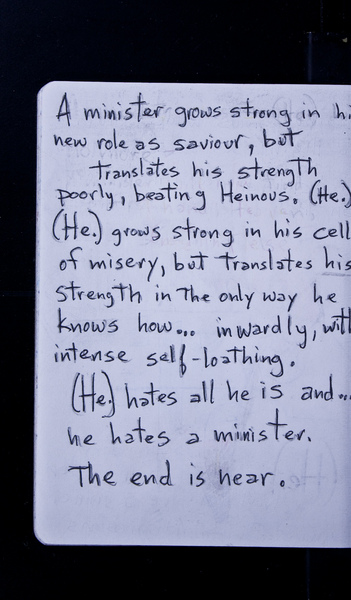 A minister grows strong in hi
new role as saviour, but
translates his strength
poorly, beating Heinous. (He.)
(He.) grows strong in his cell
of misery, but translates his
strength in the only way he
knows how... inwardly, wit
intense self-loathing.
(He.) hates all he is and...
he hates a minister.
The end is near.